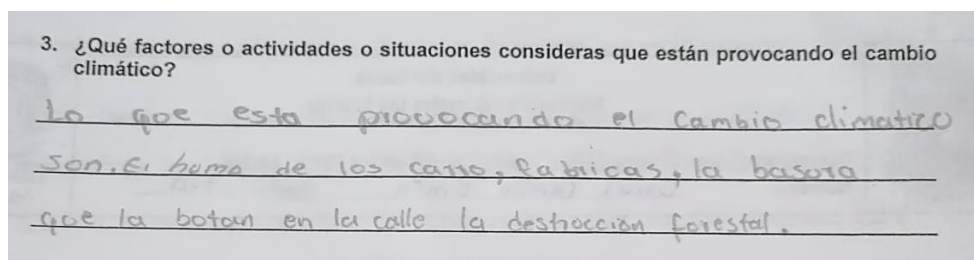 3. ¿Qué factores o actividades o situaciones consideras que están provocando el cambio
climático?
Lo que esta provocando el cambio climatico
son. El homo de los carro, fabricas, la basora
que la botan en la calle la destroccion forestal.